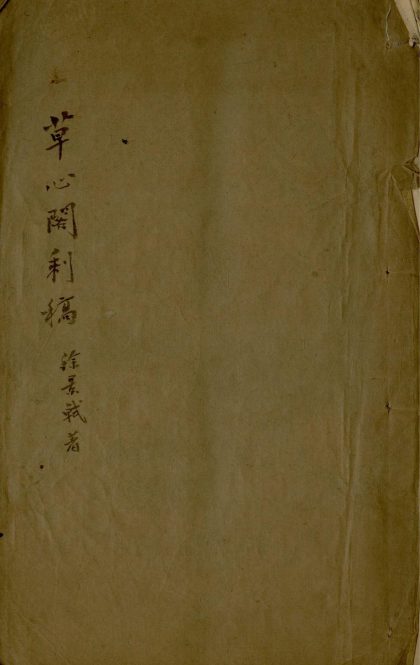 草心閣剩稿
徐景軾著